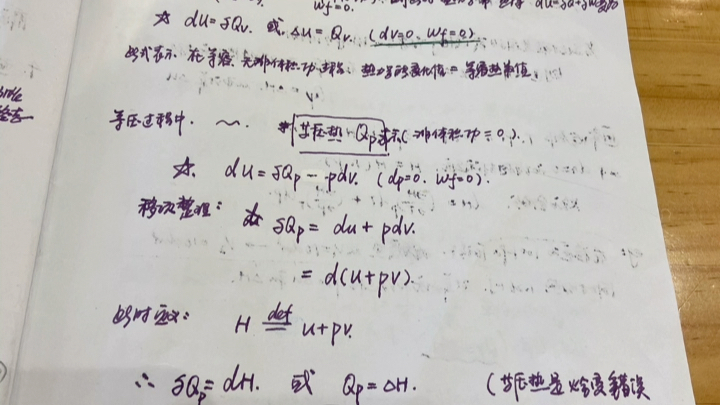 Wf=0.
☆ dU=δQv. 或 ΔU=Qv. (dv=0. Wf=0)
此式表示 在等容 无非体积功过程 热力学能变化值 = 等容热 值
等压过程中. ~~. 等压热 Qp表示(非体积功=0).
☆. dU=δQp-pdv. (dp=0. Wf=0).
移项整理: δQp = du+pdv.
= d(u+pv).
此时定义: H def u+pv.
∴ δQp=dH. 或 Qp=ΔH. (等压热是焓变 錯误